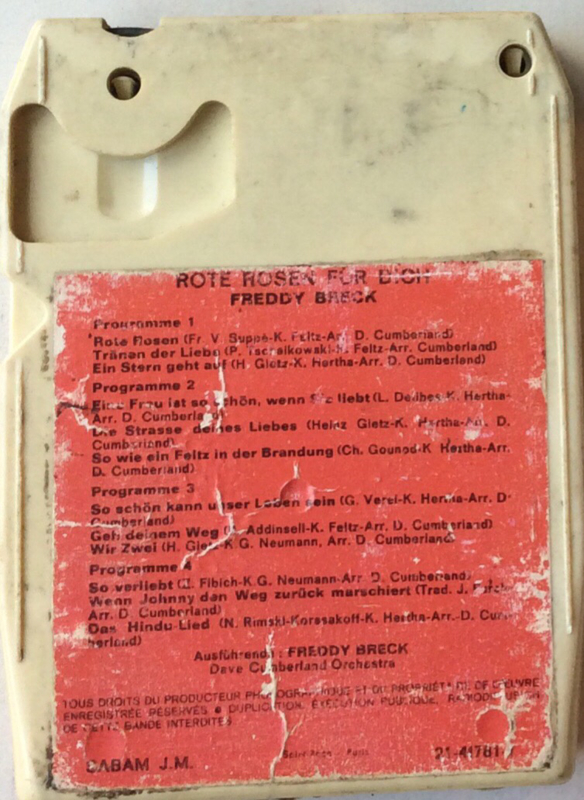 ROTE ROSEN FÜR DICH
FREDDY BRECK
Programme 1
Rote Rosen (Fr. V. Suppé-K. Feltz-Arr. D. Cumberland)
Tränen der Liebe (P. Tschaikowski-K. Feltz-Arr. Cumberland)
Ein Stern geht auf (H. Gietz-K. Hertha-Arr. D. Cumberland)
Programme 2
Eine Frau ist so schön, wenn sie liebt (L. Delibes-K. Hertha-
Arr. D. Cumberland)
Die Strasse deines Liebes (Heinz Gietz-K. Hertha-Arr. D.
Cumberland)
So wie ein Feltz in der Brandung (Ch. Gounod-K Hertha-Arr.
D. Cumberland)
Programme 3
So schön kann unser Leben sein (G. Verdi-K. Hertha-Arr. D.
Cumberland)
Geh deinem Weg Addinsell-K. Feltz-Arr. D. Cumberland)
Wir Zwei (H. Gietz-K.G. Neumann, Arr. D. Cumberland
Programme 4
So verliebt (Z. Fibich-K.G. Neumann-Arr. D. Cumberland)
Wenn Johnny den Weg zurück marschiert (Trad. J.
Arr. D. Cumberland)
Das Hindu-Lied (N. Rimski-Korssakoff-K. Hertha-Arr.-D. Cum-
berland)
Ausführende : FREDDY BRECK
Dave Cumberland Orchestra
TOUS DROITS DU PRODUCTEUR PHONOGRAPHIQUE ET DU PROPRIÉTAIRE DE L'ŒUVRE
ENREGISTRÉE RÉSERVÉS • DUPLICATION, EXÉCUTION PUBLIQUE, RADIODIFFUSION
DE CETTE BANDE INTERDITES.
SABAM J.M.